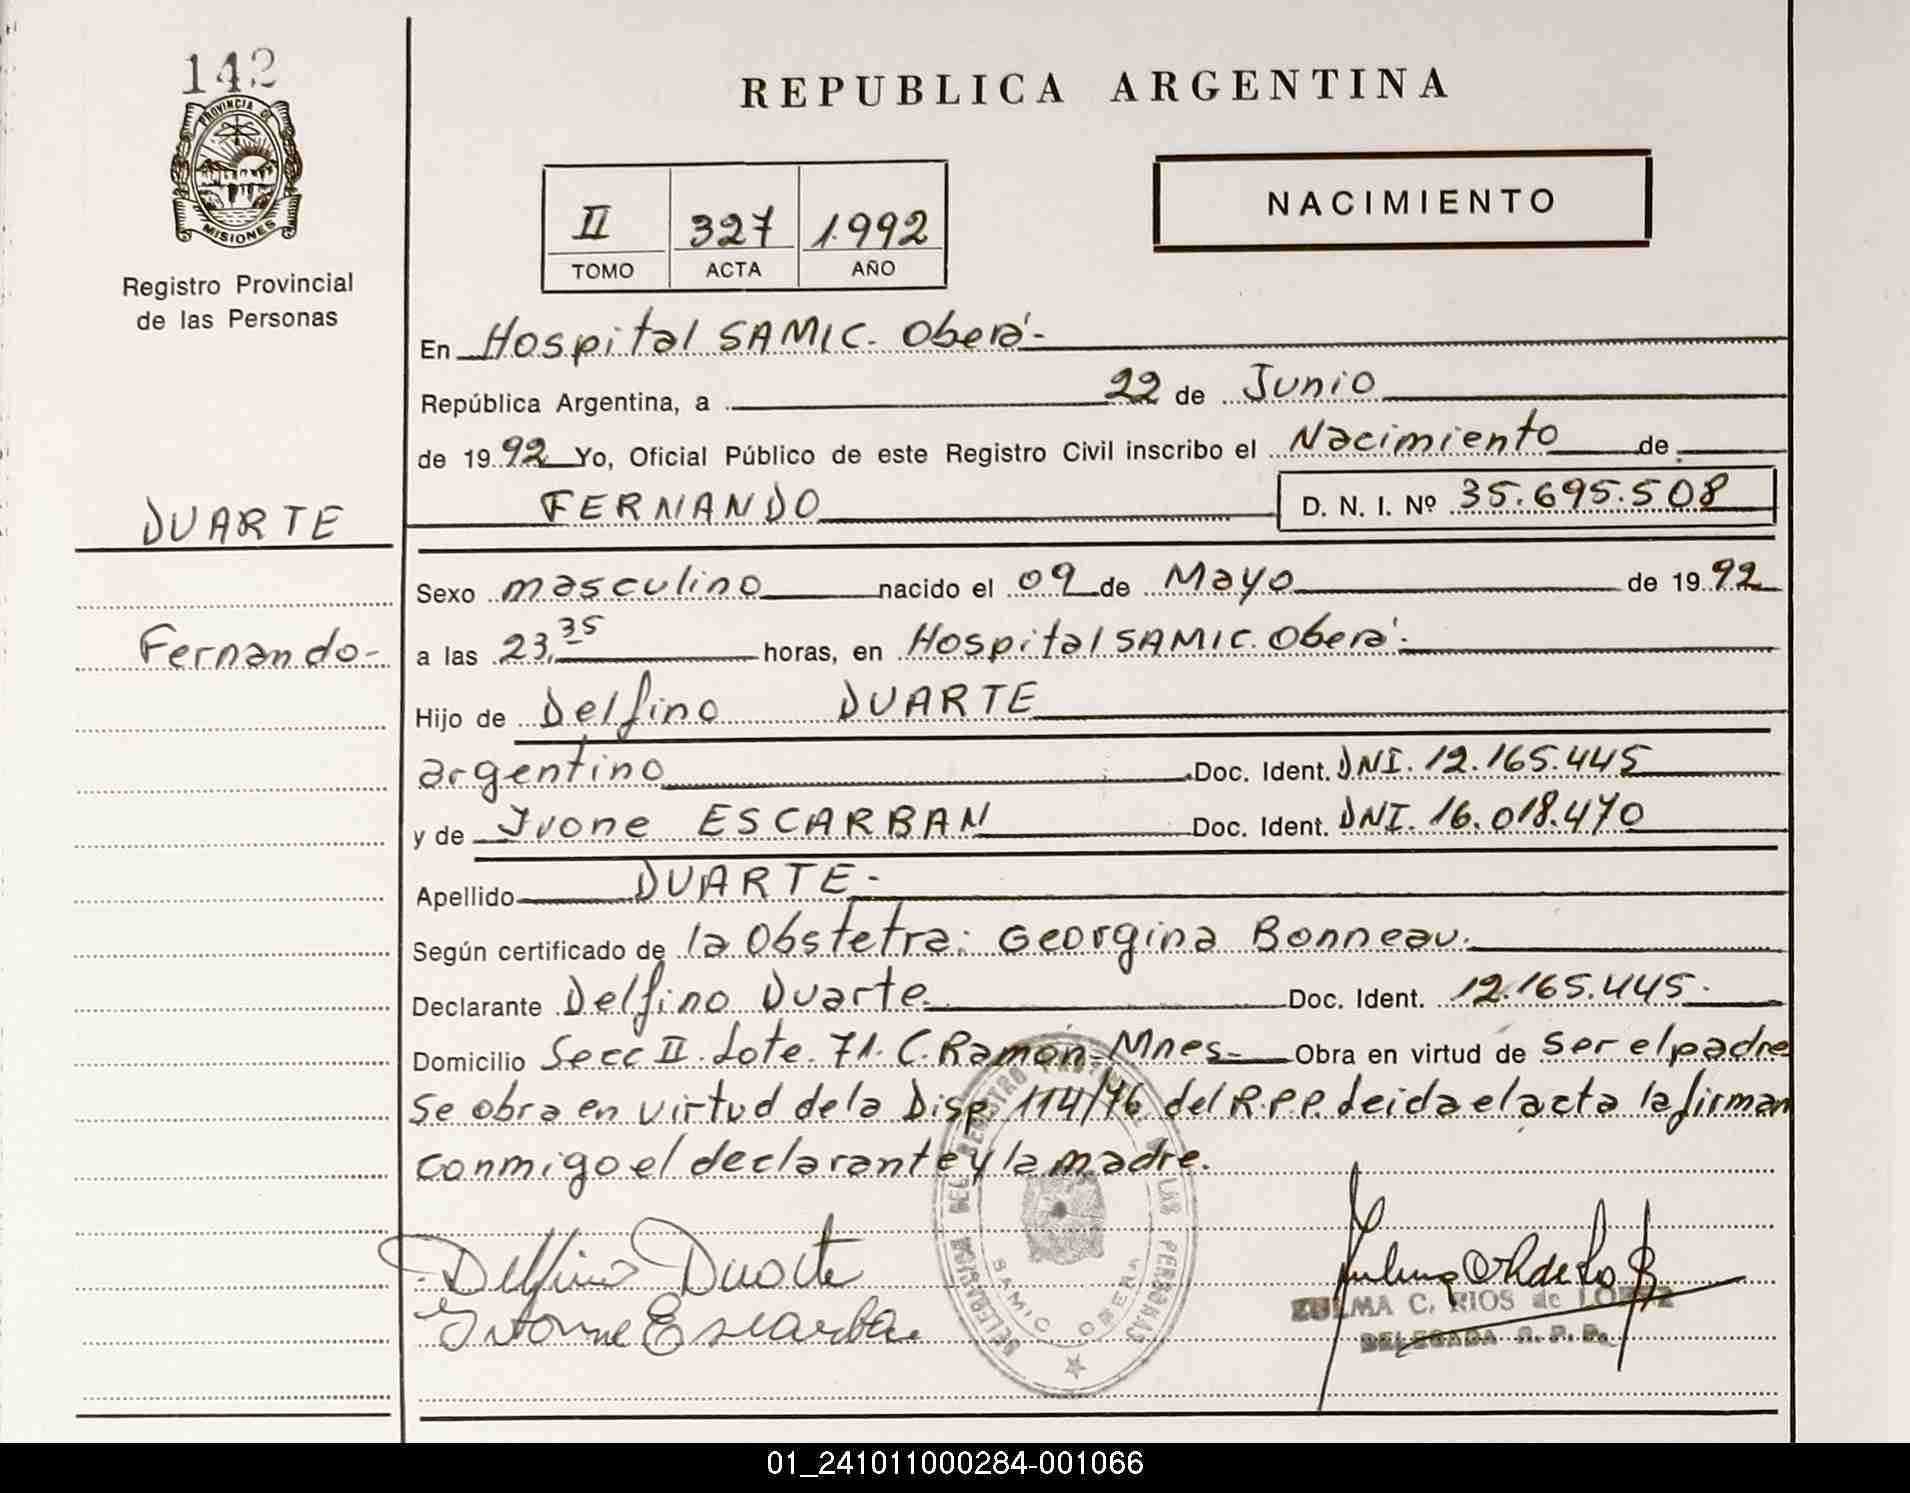 142
PROVINCIA DE
MISIONES
Registro Provincial
de las Personas
REPUBLICA ARGENTINA
II 327 1.992
TOMO ACTA AÑO
NACIMIENTO
En Hospital SAMIC. Oberá.-
República Argentina, a 22 de Junio
de 1992 Yo, Oficial Público de este Registro Civil inscribo el Nacimiento de
FERNANDO D. N. I. Nº 35.695.508
DUARTE
Fernando-
Sexo masculino nacido el 09 de Mayo de 1992
a las 23,35 horas, en Hospital SAMIC. Oberá.-
Hijo de Delfino DUARTE
argentino Doc. Ident. DNI. 12.165.445
y de Ivone ESCARBAN Doc. Ident. DNI. 16.018.470
Apellido DUARTE.-
Según certificado de la Obstetra: Georgina Bonneau.
Declarante Delfino Duarte. Doc. Ident. 12.165.445.
Domicilio Secc II. Lote. 71. C. Ramón-Mnes- Obra en virtud de Ser el padre
Se obra en virtud de la Disp. 114/76 del R.P.P. leida el acta la firman
conmigo el declarante y la madre.
Delfino Duarte
DELEGACION DEL REGISTRO PROVINCIAL DE LAS PERSONAS
SAMIC OBERA
ZULMA C. RIOS de LOPEZ
DELEGADA R. P. P.
01_241011000284-001066